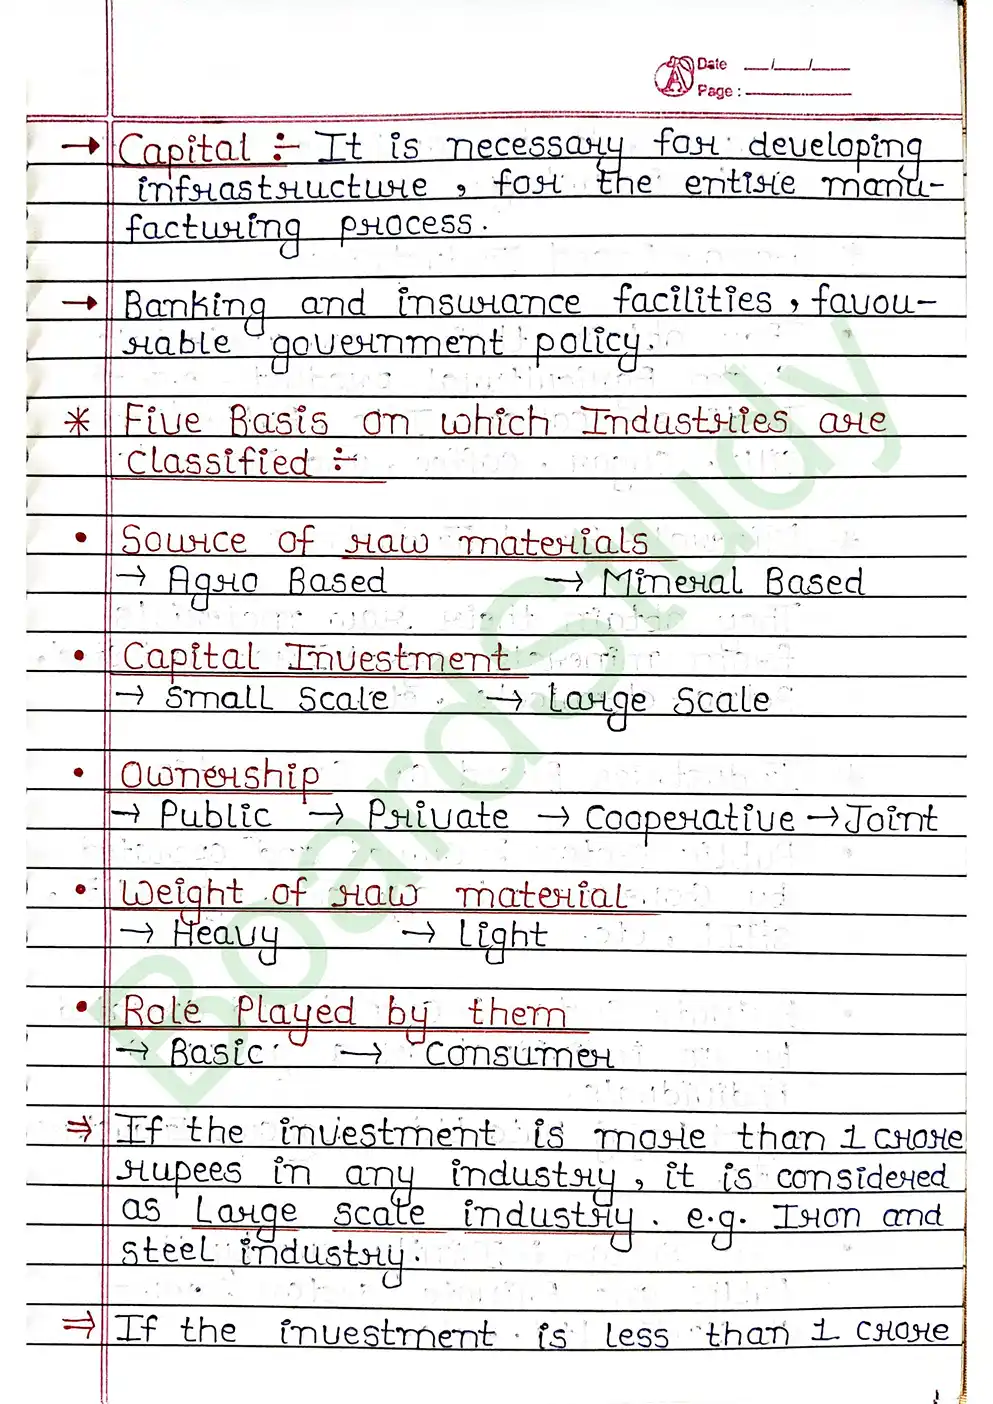 Date __/__/__
Page : ________
→ Capital ÷ It is necessary for developing
infrastructure, for the entire manu-
facturing process.
→ Banking and insurance facilities, favou-
rable government policy.
* Five Basis on which Industries are
classified ÷
• Source of raw materials
→ Agro Based → Mineral Based
• Capital Investment
→ Small Scale → Large Scale
• Ownership
→ Public → Private → Cooperative → Joint
• Weight of raw material
→ Heavy → Light
• Role Played by them
→ Basic → Consumer
⇒ If the investment is more than 1 crore
rupees in any industry, it is considered
as Large scale industry. e.g. Iron and
steel industry.
⇒ If the investment is less than 1 crore
BoardStudy